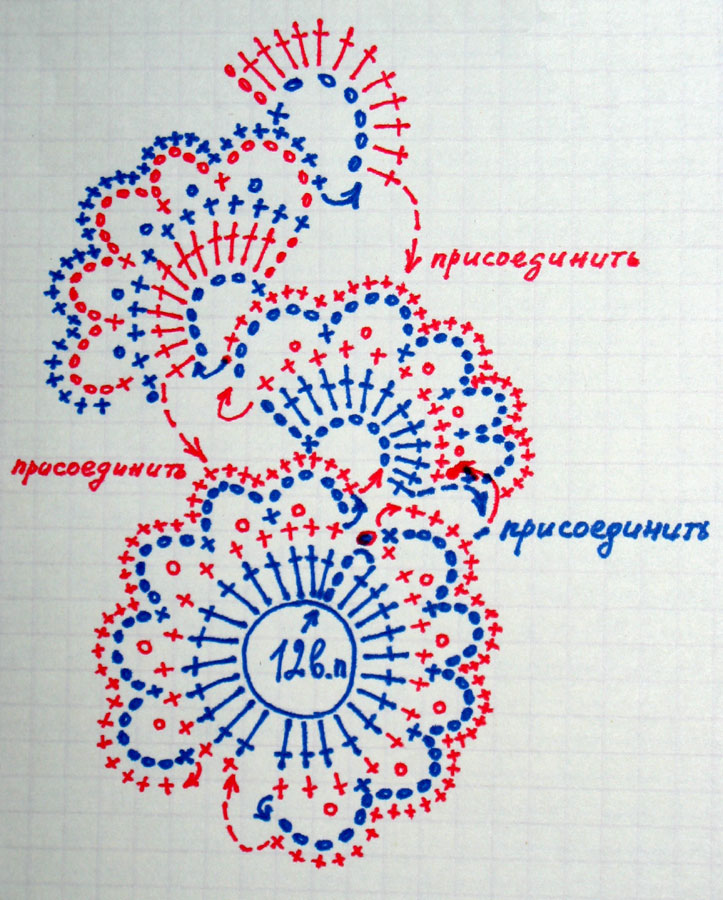 присоединить
присоединить
присоединить
12в.п